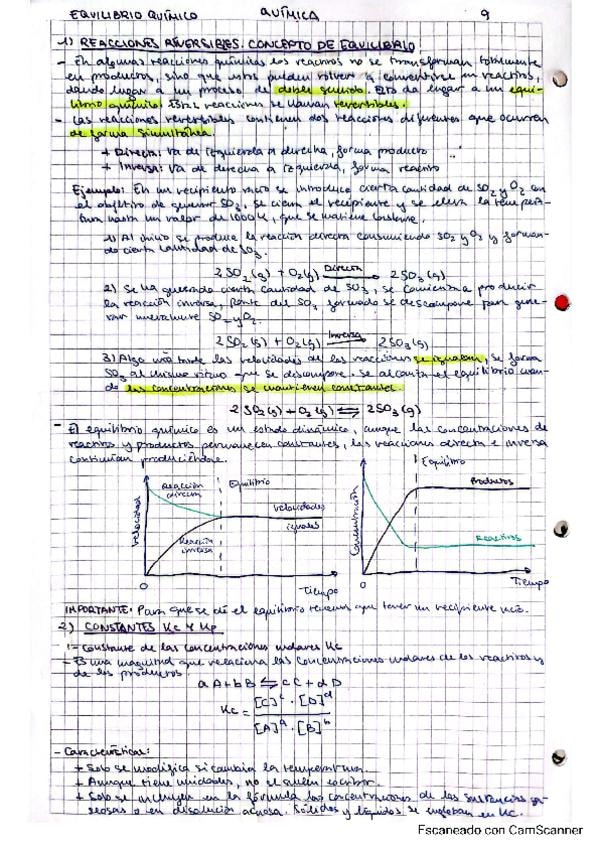 EQUILIBRIO QUÍMICO QUÍMICA 9
1) REACCIONES REVERSIBLES. CONCEPTO DE EQUILIBRIO
- En algunas reacciones químicas los reactivos no se transforman totalmente
en productos, sino que estos pueden volver a convertirse en reactivos,
dando lugar a un proceso de doble sentido. Esto da lugar a un equi-
librio químico. Estas reacciones se llaman reversibles.
- Las reacciones reversibles contienen dos reacciones diferentes que ocurren
de forma simultánea.
+ Directa: Va de izquierda a derecha, forma producto
+ Inversa: Va de derecha a izquierda, forma reactivo
Ejemplo: En un recipiente vacío se introduce cierta cantidad de SO2 y O2 con
el objetivo de generar SO3, se cierra el recipiente y se eleva la tempera-
tura hasta un valor de 1000K, que se mantiene constante.
1) Al inicio se produce la reacción directa consumiendo SO2 y O2 y forman-
do cierta cantidad de SO3.
2SO2(g) + O2(g) Directa → 2SO3(g)
2) Se ha generado cierta cantidad de SO3, se comienza a producir
la reacción inversa, parte del SO3 formado se descompone para gene-
rar nuevamente SO2 y O2.
2SO2(g) + O2(g) Inversa → 2SO3(g)
3) Algo más tarde las velocidades de las reacciones se igualan, se forma
SO3 al mismo ritmo que se descompone. Se alcanza el equilibrio cuan-
do las concentraciones se mantienen constantes.
2SO2(g) + O2(g) ⇆ 2SO3(g)
- El equilibrio químico es un estado dinámico, aunque las concentraciones de
reactivos y productos permanecen constantes, las reacciones directa e inversa
continúan produciéndose.
Velocidad
Reacción directa
Equilibrio
velocidades iguales
Reacción inversa
0
Tiempo
Concentración
Equilibrio
Productos
Reactivos
0
Tiempo
IMPORTANTE: Para que se dé el equilibrio tenemos que tener un recipiente
2) CONSTANTES Kc Y Kp
1- Constante de las concentraciones molares Kc
- Es una magnitud que relaciona las concentraciones molares de los reactivos y
de los productos.
aA + bB ⇆ cC + dD
Kc = [C]^c · [D]^d
[A]^a · [B]^b
- Características:
+ Solo se modifica si cambia la temperatura.
+ Aunque tiene unidades, no se suelen escribir.
+ Solo se incluyen en la fórmula las concentraciones de las sustancias ga-
seosas o en disolución acuosa. Sólidos y líquidos se engloban en Kc.
Escaneado con CamScanner